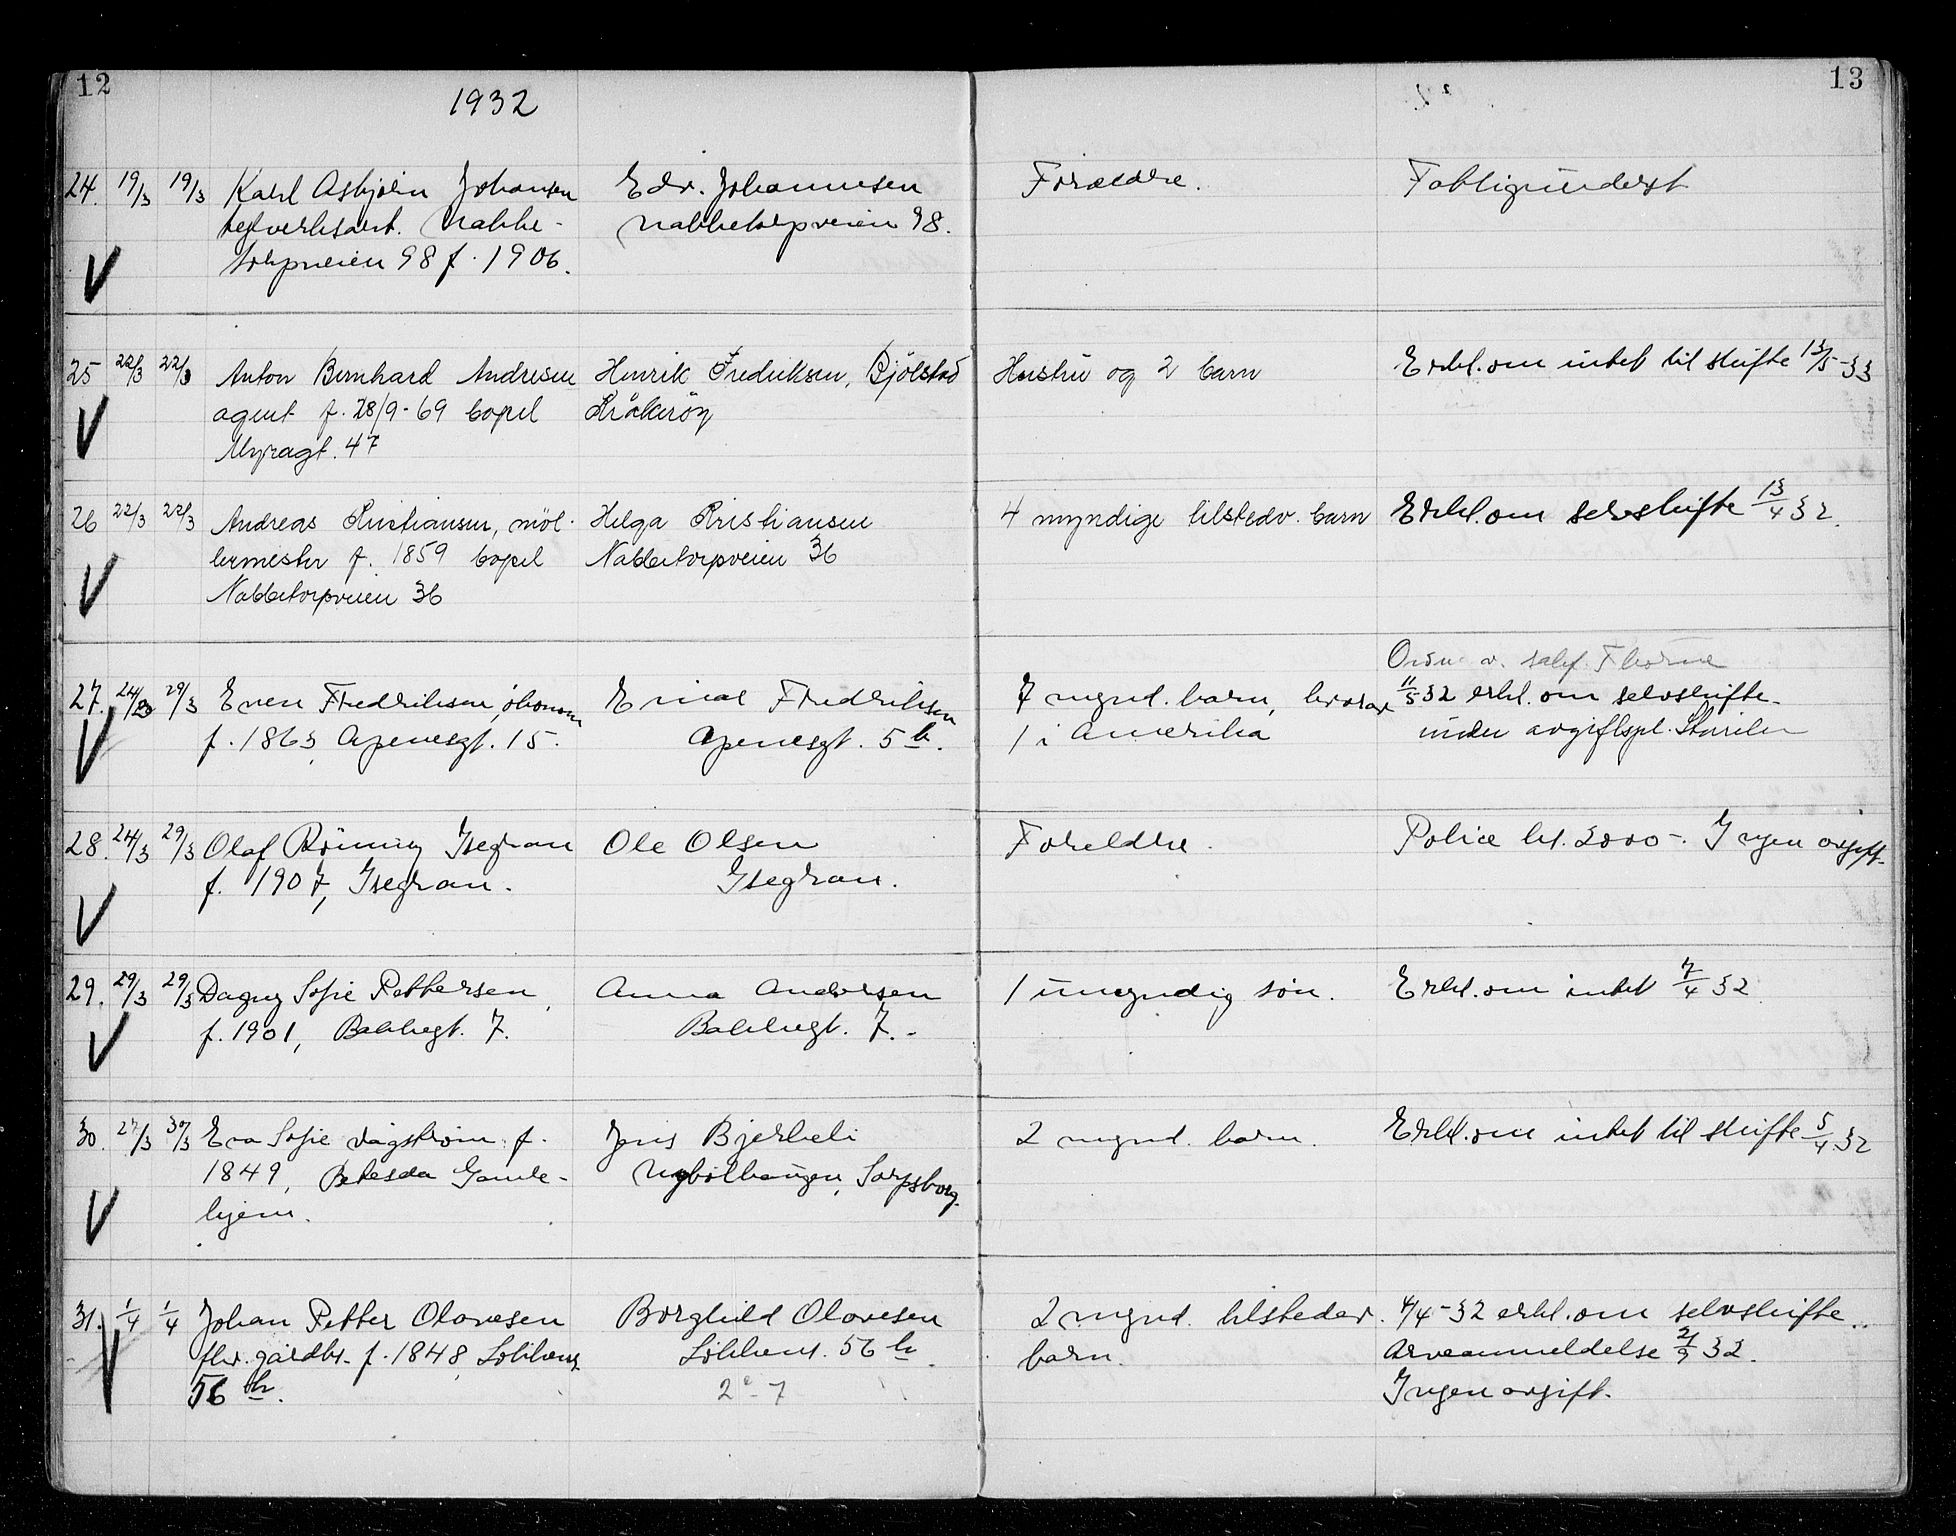 12
1932
13
24. 19/3 19/3 Karl Asbjörn Johansen
Nabbe-
torpveien 98 f. 1906.
Edv. Johannesen
Nabbetorpveien 98.
Foreldre.
Fattigunderst
25 22/3 22/3 Anton Bernhard Andresen
agent f. 28/9-69 bopel
Myragt. 47
Henrik Fredriksen, Bjölstad
Kråkeröy
Hustru og 2 barn
Erkl. om intet til skifte 13/5-33
26 22/3 22/3 Andreas Kristiansen, möl-
lermester f. 1859 bopel
Nabbetorpveien 36
Helga Kristiansen
Nabbetorpveien 36
4 myndige tilstedv. barn
Erkl. om selvskifte 13/4 32.
27. 24/3 29/3 Even Fredriksen, ökonom
f. 1863, Apenesgt. 15.
Einar Fredriksen
Apenesgt. 5 b.
7 mynd. barn, hvorav
1 i Amerika
v. sakf. Thorne
11/5 32 erkl. om selvskifte.
under avgiftspl. Störrelse
28. 24/3 29/3 Olaf Rönning Isegran
f. 1907, Isegran.
Ole Olsen
Isegran.
Foreldre.
Police kr. 2000-. Ingen avgift.
29. 29/3 29/3 Dagny Sofie Pettersen,
f. 1901, Bakkegt. 7.
Anna Andersen
Bakkegt. 7.-
1 umyndig sön.
Erkl. om intet 7/4 32.
30. 27/3 30/3 Eva Sofie Vågström f.
1849, Betesda Gamle-
hjem.
Jens Bjerkeli
Sarpsborg.
2 mynd. barn.
Erkl. om intet til skifte 5/4 32
31. 1/4 1/4 Johan Petter Olavesen
fhv. gårdbr. f. 1848,
56 b.
Borghild Olavesen
56 b.
2 mynd. tilstedev.
barn.
4/4-32 erkl. om selvskifte.
Arveanmeldelse 2/9 32.
Ingen avgift.